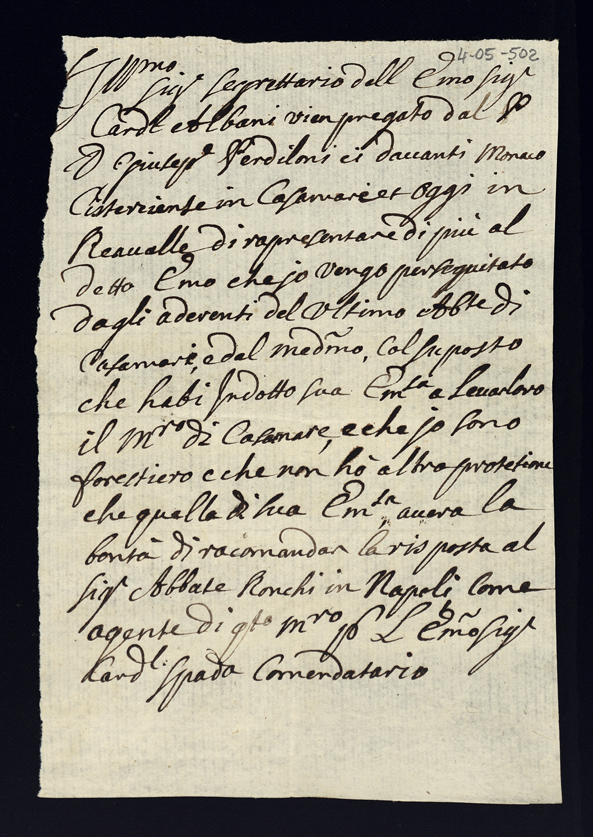 4-05-502
Illmo
Sigr Segrettario dell Emo Sigr
Cardl Albani vien pregato dal Po
D Giusepe Verdiloni ci davanti Monaco
Cisterciente in Casamari et oggi in
Reavalle di rapresentare di più al
detto Emo che jo vengo perseguitato
dagli aderenti del Ultimo Abte di
Casamari, e dal medmo, col suposto
che habi Indotto sua Emsa a levarloro
il Mro di Casamare, e che jo sono
forestiero e che non hò altra protetione
che quella di sua Emsa, avera la
bontà di racomandar la risposta al
Sigr Abbate Ronchi in Napoli Come
agente di qto Mro po L Emo Sigr
Cardl: Spada Comendatario